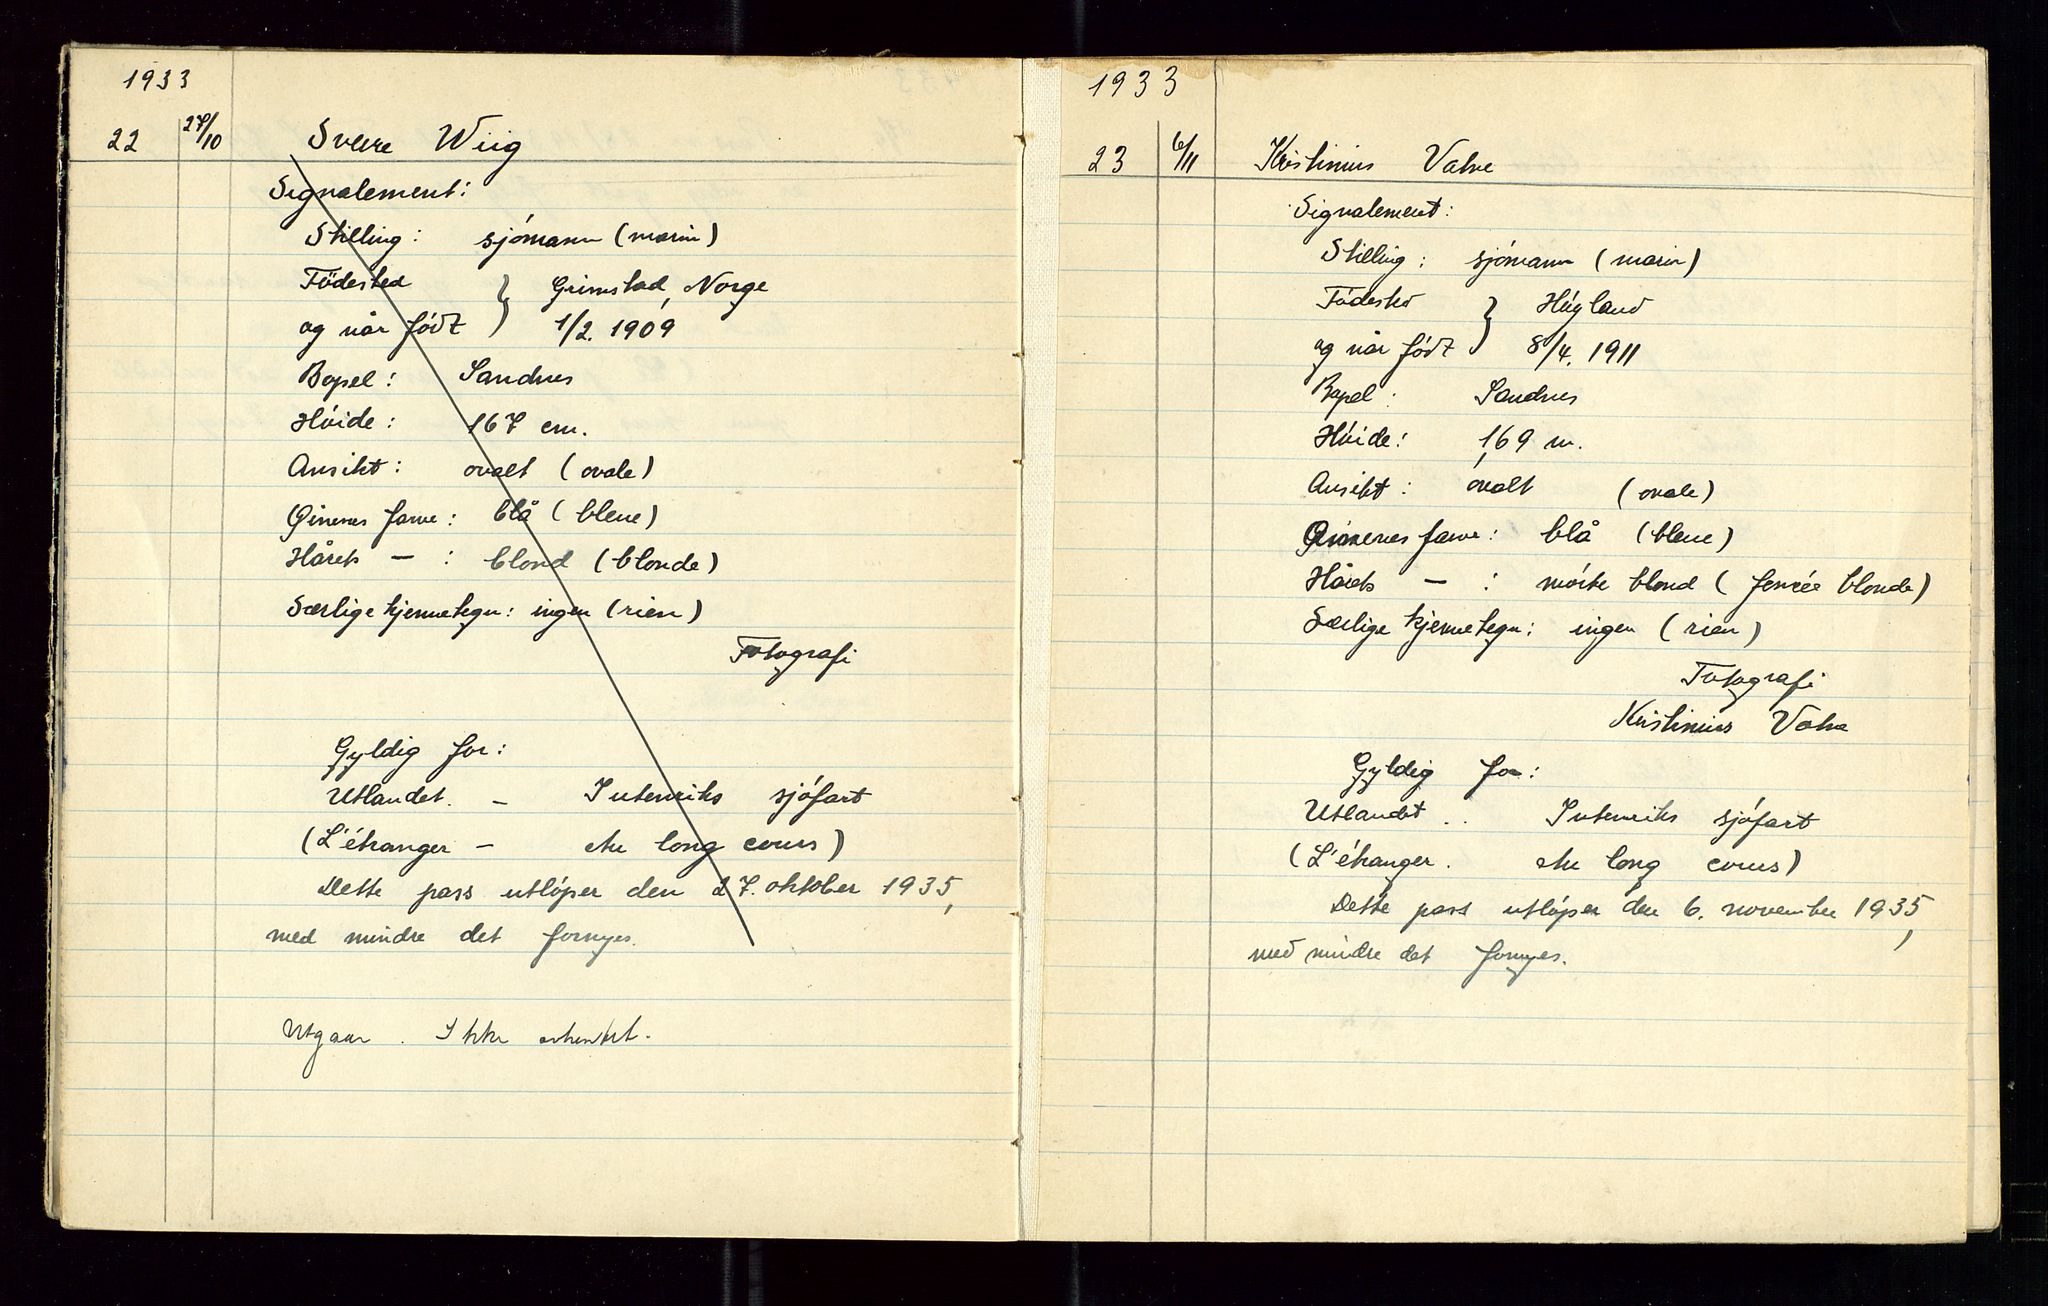 1933
22 27/10 Sverre Wiig
Signalement:
Stilling: sjómann (marin)
Födested } Grimstad, Norge
og når födt } 1/2. 1909
Bopel: Sandnes
Hóide: 167 cm.
Ansikt: ovalt (ovale)
Öinenes farve: blå (bleue)
Hårets — : blond (blonde)
Særlige kjennetegn: ingen (rien)
Fotografi
Gyldig for:
Utlandet. – Inteṅriks sjófart
(L'étranger – au long cours)
Dette pass utlóper den 27. oktober 1935,
med mindre det fornyes.
Utgaar. Ikke avhentet.
1933
23 6/11 Kristinius Vatne
Signalement:
Stilling: sjómann (marin)
Födested } Hóyland
og når födt } 8/4. 1911
Bopel: Sandnes
Hóide: 1,69 m.
Ansikt: ovalt (ovale)
Öinenes farve: blå (bleue)
Hårets — : mórke blond (foncée blonde)
Særlige kjennetegn: ingen (rien)
Fotografi
Kristinius Vatne
Gyldig for:
Utlandet .. Utenriks sjófart
(L'étranger. au long cours)
Dette pass utlóper den 6. november 1935,
med mindre det fornyes.